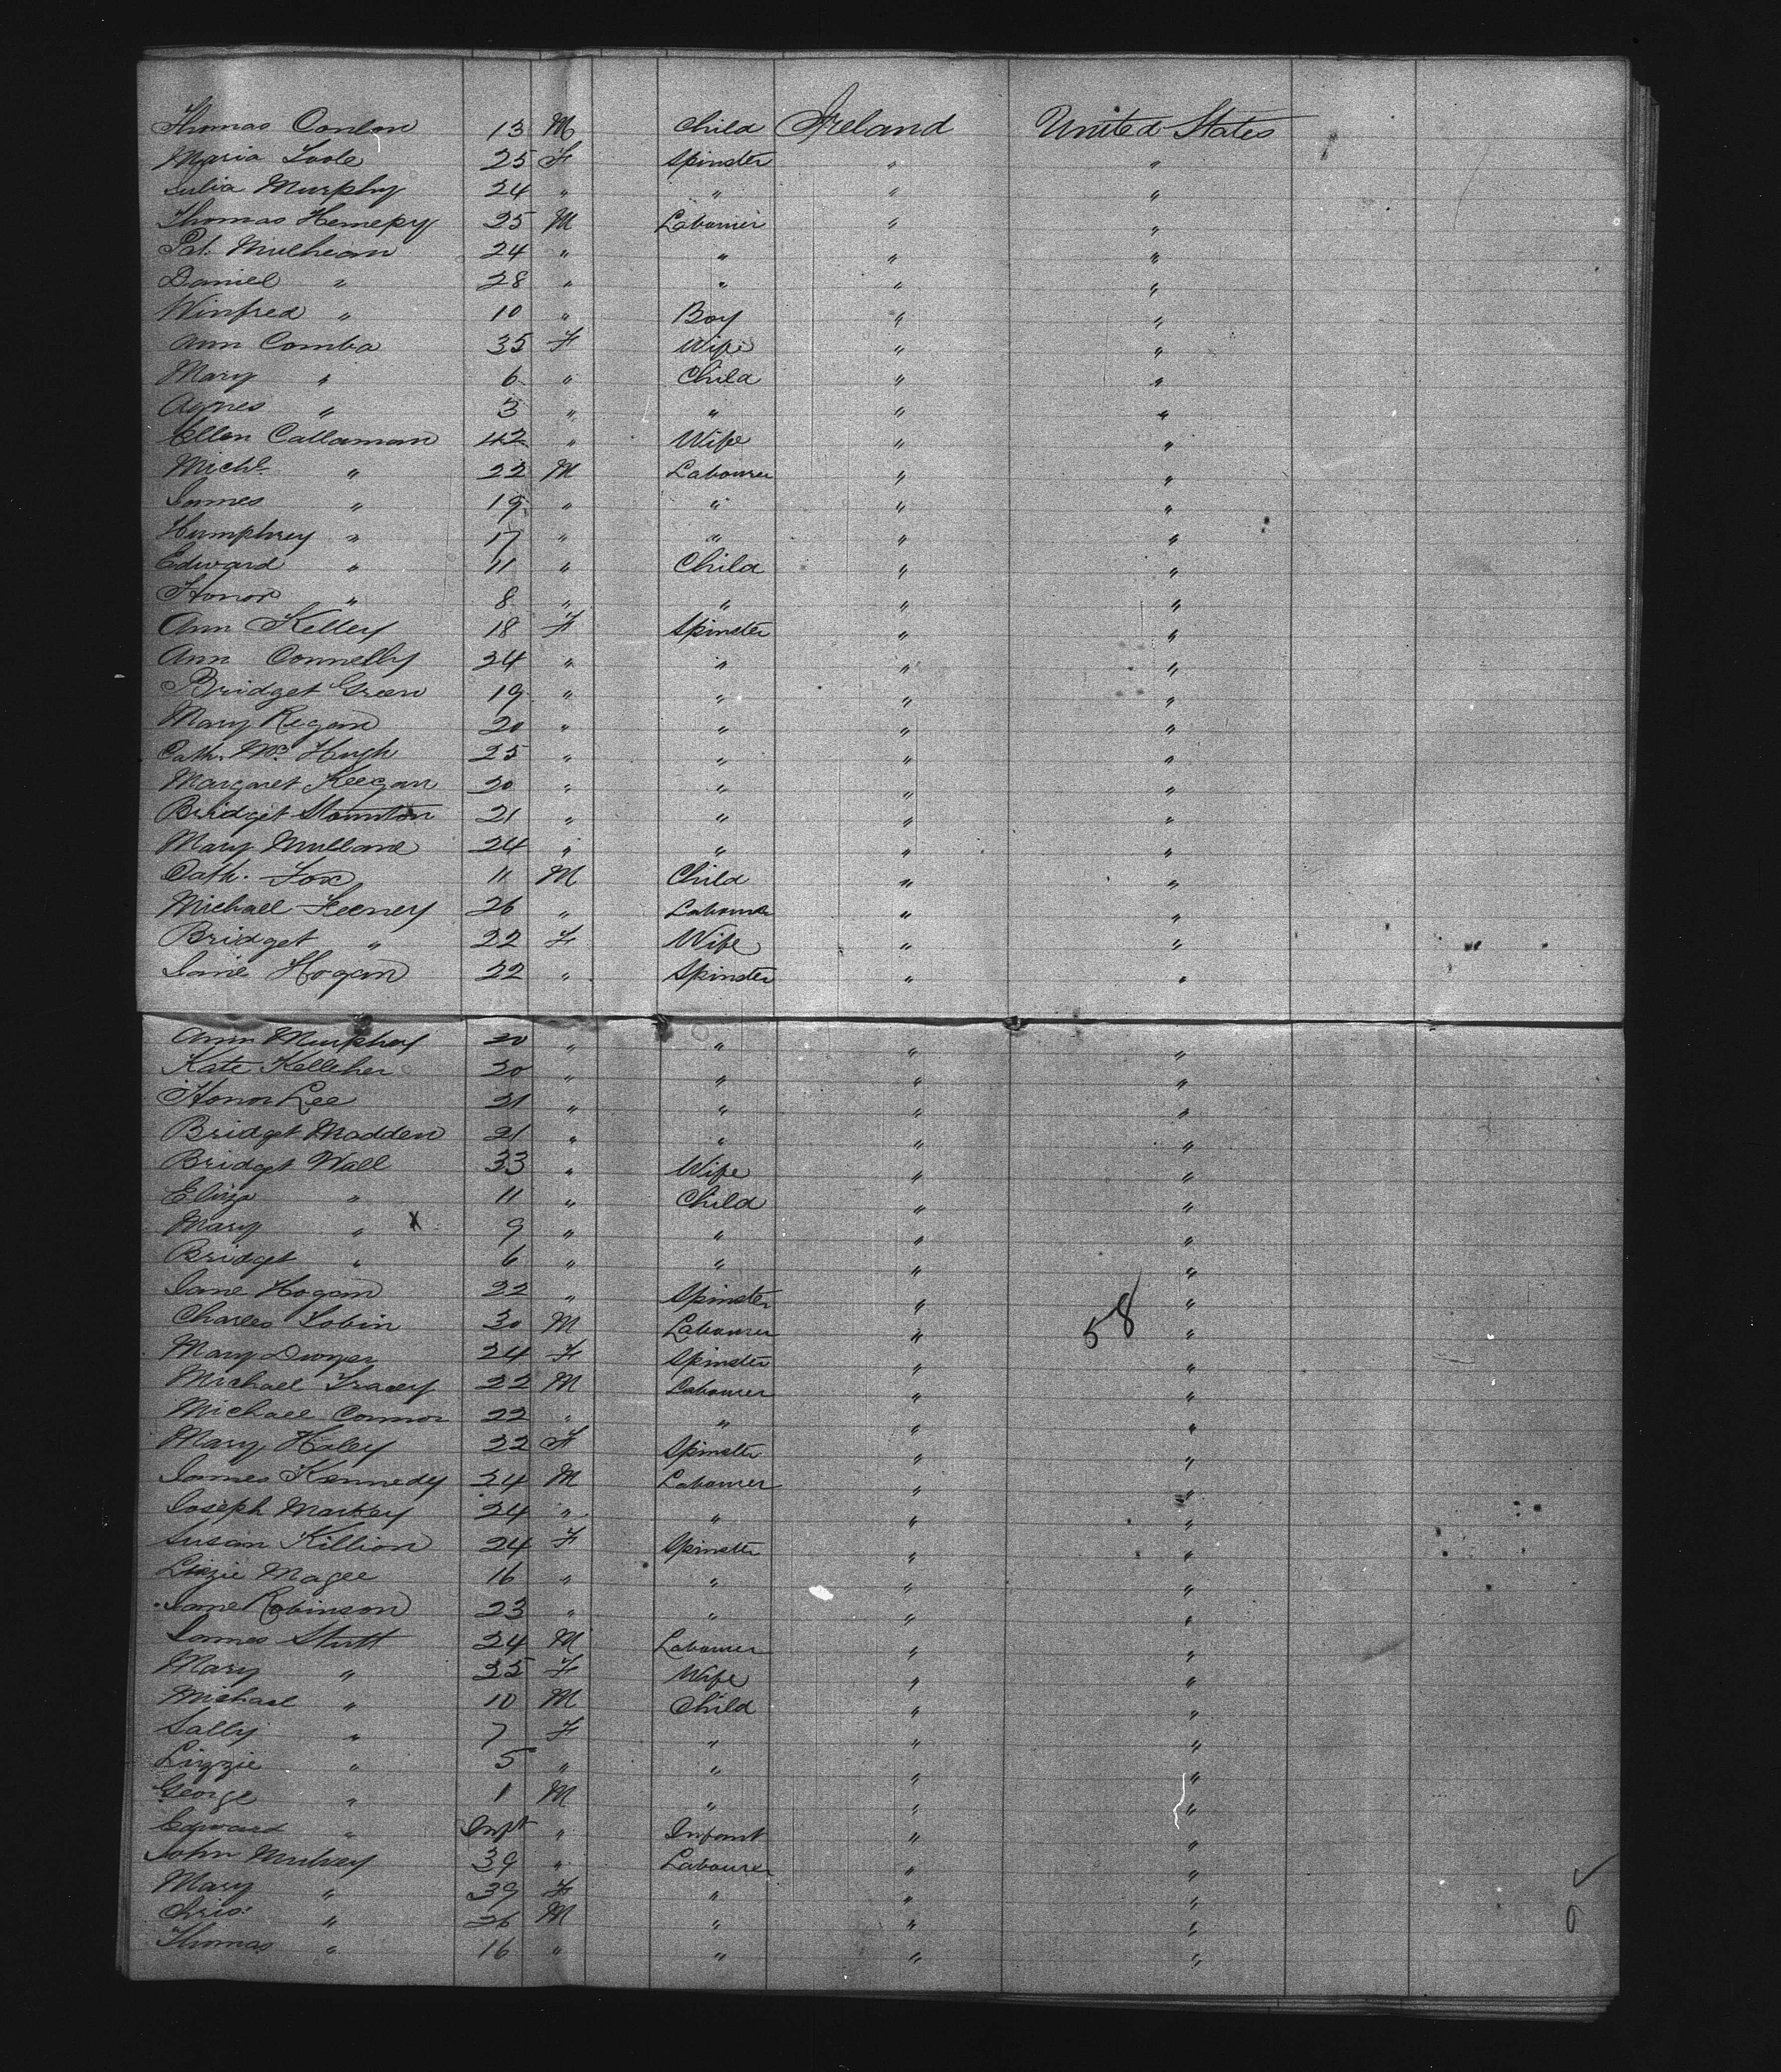 Thomas Conlon 13 M Child Ireland United States
Maria Toole 25 F Spinster " "
Julia Murphy 24 " " " "
Thomas 25 M Labourer " "
Pat. Mulhearn 24 " " " "
Daniel " 28 " " " "
Winfred " 10 " Boy " "
Ann Comba 35 F Wife " "
Mary " 6 " Child " "
Agnes " 3 " " " "
Ellen Callaman 42 " Wife " "
Michl. " 22 M Labourer " "
James " 19 " " " "
Humphrey " 17 " " " "
Edward " 11 " Child " "
Honor " 8 " " " "
Ann Kelley 18 F Spinster " "
Ann Connelly 24 " " " "
Bridget Green 19 " " " "
Mary Regan 20 " " " "
Cath. Mc. Hugh 25 " " " "
Margaret Keegan 20 " " " "
Bridget Staunton 21 " " " "
Mary 24 " " " "
Cath. Fox 11 M Child " "
Michael Feeney 26 " Labourer " "
Bridget " 22 F Wife " "
Jane Hogan 22 " Spinster " "
Ann Murphey 20 " " " "
Kate Kelleher 20 " " " "
Honor Lee 21 " " " "
Bridget Madden 21 " " " "
Bridget Wall 33 " Wife " "
Eliza " 11 " Child " "
Mary " X 9 " " " "
Bridget " 6 " " " "
Jane Hogan 22 " Spinster " "
Charles Tobin 30 M Labourer " 58 "
Mary Dwyer 24 F Spinster " "
Michael Tracey 22 M Labourer " "
Michael Connor 22 " " " "
Mary Haley 22 F Spinster " "
James Kennedy 24 M Labourer " "
Joseph Markey 24 " " " "
Susan Killion 24 F Spinster " "
Lizzie Magee 16 " " " "
Jane Robinson 23 " " " "
James Stutt 24 M Labourer " "
Mary " 25 F Wife " "
Michael " 10 M Child " "
Sally " 7 F " " "
Lizzie " 5 " " " "
George " 1 M " " "
Edward " Inft " Infant " "
John Mulvey 39 " Labourer " "
Mary " 39 F " " "
Chris: " 26 M " " "
Thomas " 16 " " " "